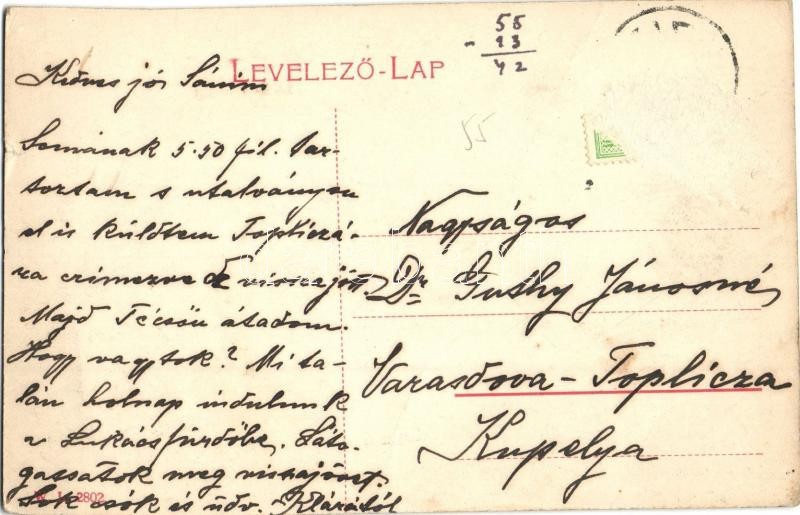 55
- 13
42
LEVELEZŐ-LAP
Kedves jó
55
Somának 5.50 fil. tar-
toztam s utalványon
el is küldtem Topliczá-
ra czimezve de visszajött.
Majd Técsőn átadom.
Hogy vagytok? Mi ta-
lán holnap indulunk
a Lukácsfürdőbe. Láto-
gassatok meg visszajövet.
Sok csók és üdv. Klárától
Nagyságos
Dr. Jánosné
Varasdova-Toplicza
Kupelya
2802